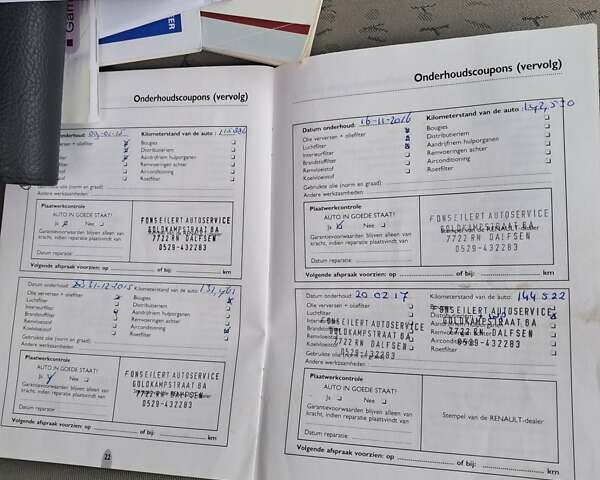 Onderhoudscoupons (vervolg)
Kilometerstand van de auto:
Bougies
Distributieriem
Aandrijfriem hulporganen
Remvoeringen achter
Airconditioning
Roetfilter
Gebruikte olie (norm en graad)
Andere werkzaamheden
Plaatwerkcontrole
AUTO IN GOEDE STAAT?
Ja Nee
Garantievoorwaarden blijven alleen van
kracht, indien reparatie plaatsvindt van
Datum reparatie:
FONSEILERT AUTOSERVICE
GOLDKAMPSTRAAT 8A
7722 RN DALFSEN
0529-432283
Volgende afspraak voorzien: op of bij: km
Datum onderhoud: 21-12-2015
Kilometerstand van de auto:
Olie verversen + oliefilter
Luchtfilter
Interieurfilter
Brandstoffilter
Remvloeistof
Koelvloeistof
Bougies
Distributieriem
Aandrijfriem hulporganen
Remvoeringen achter
Airconditioning
Roetfilter
Gebruikte olie (norm en graad)
Andere werkzaamheden
Plaatwerkcontrole
AUTO IN GOEDE STAAT?
Ja Nee
Garantievoorwaarden blijven alleen van
kracht, indien reparatie plaatsvindt van
Datum reparatie:
FONSEILERT AUTOSERVICE
GOLDKAMPSTRAAT 8A
7722 RN DALFSEN
0529-432283
Volgende afspraak voorzien: op of bij: km
22
Onderhoudscoupons (vervolg)
Datum onderhoud: 16-11-2016
Kilometerstand van de auto:
Olie verversen + oliefilter
Luchtfilter
Interieurfilter
Brandstoffilter
Remvloeistof
Koelvloeistof
Bougies
Distributieriem
Aandrijfriem hulporganen
Remvoeringen achter
Airconditioning
Roetfilter
Gebruikte olie (norm en graad)
Andere werkzaamheden
Plaatwerkcontrole
AUTO IN GOEDE STAAT?
Ja Nee
Garantievoorwaarden blijven alleen van
kracht, indien reparatie plaatsvindt van
Datum reparatie:
FONSEILERT AUTOSERVICE
GOLDKAMPSTRAAT 8A
7722 RN DALFSEN
0529-432283
Volgende afspraak voorzien: op of bij: km
Datum onderhoud: 20 02 17
Kilometerstand van de auto: 144522
Olie verversen + oliefilter
Luchtfilter
Bougies
Remvoeringen achter
Airconditioning
Roetfilter
FONSEILERT AUTOSERVICE
GOLDKAMPSTRAAT 8A
7722 RN DALFSEN
0529-432283
FONSEILERT AUTOSERVICE
GOLDKAMPSTRAAT 8A
7722 RN DALFSEN
0529-432283
Gebruikte olie (norm en graad)
Andere werkzaamheden
Plaatwerkcontrole
AUTO IN GOEDE STAAT?
Ja Nee
Garantievoorwaarden blijven alleen van
kracht, indien reparatie plaatsvindt van
Datum reparatie:
Stempel van de RENAULT-dealer
Volgende afspraak voorzien: op of bij: km